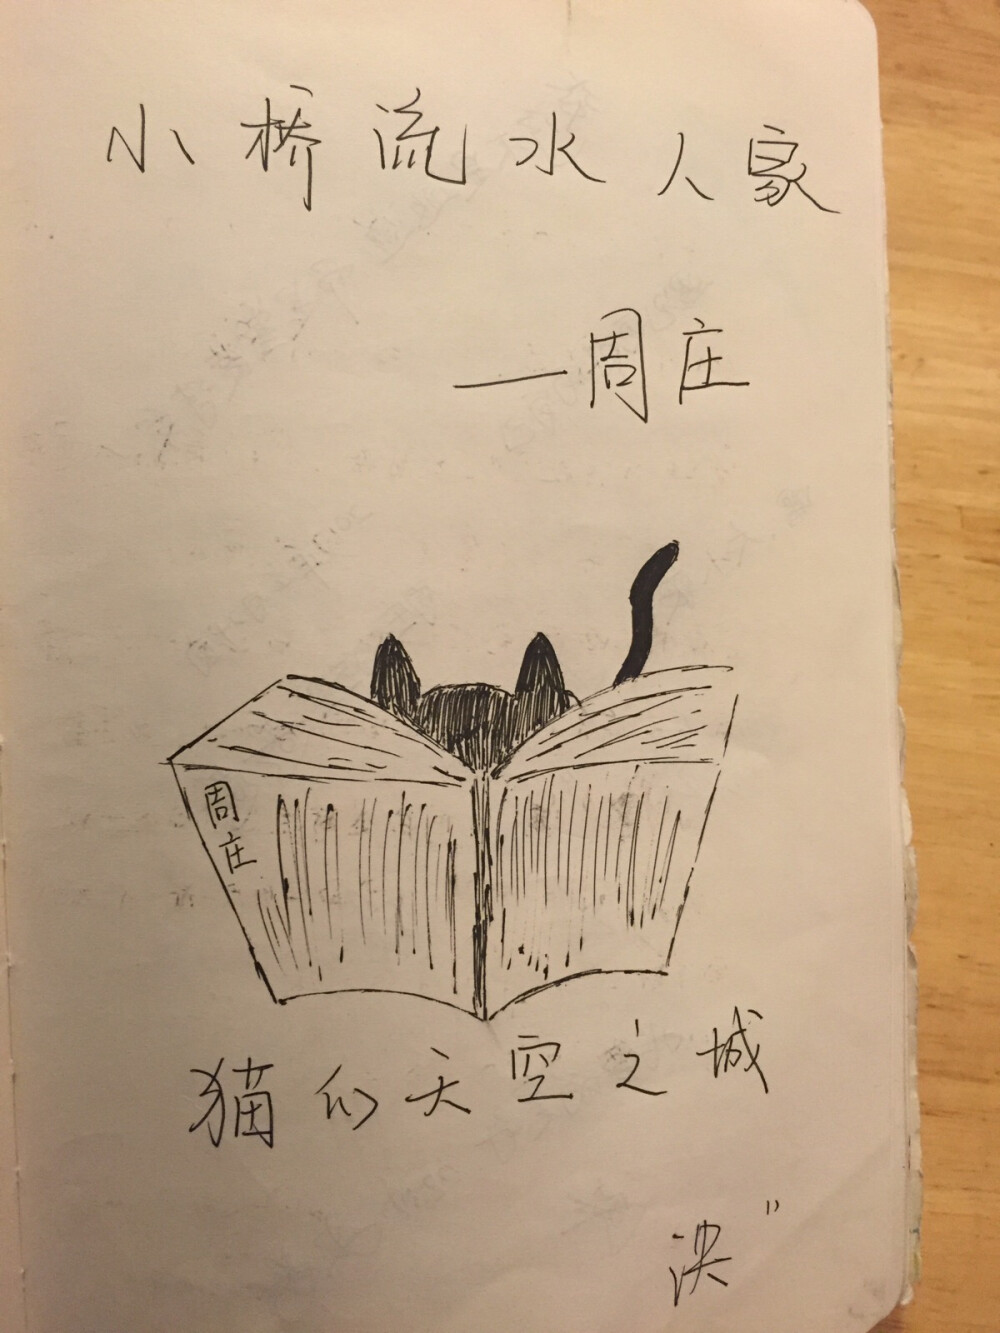 小桥流水人家
—周庄
周
庄
猫的天空之城
决"